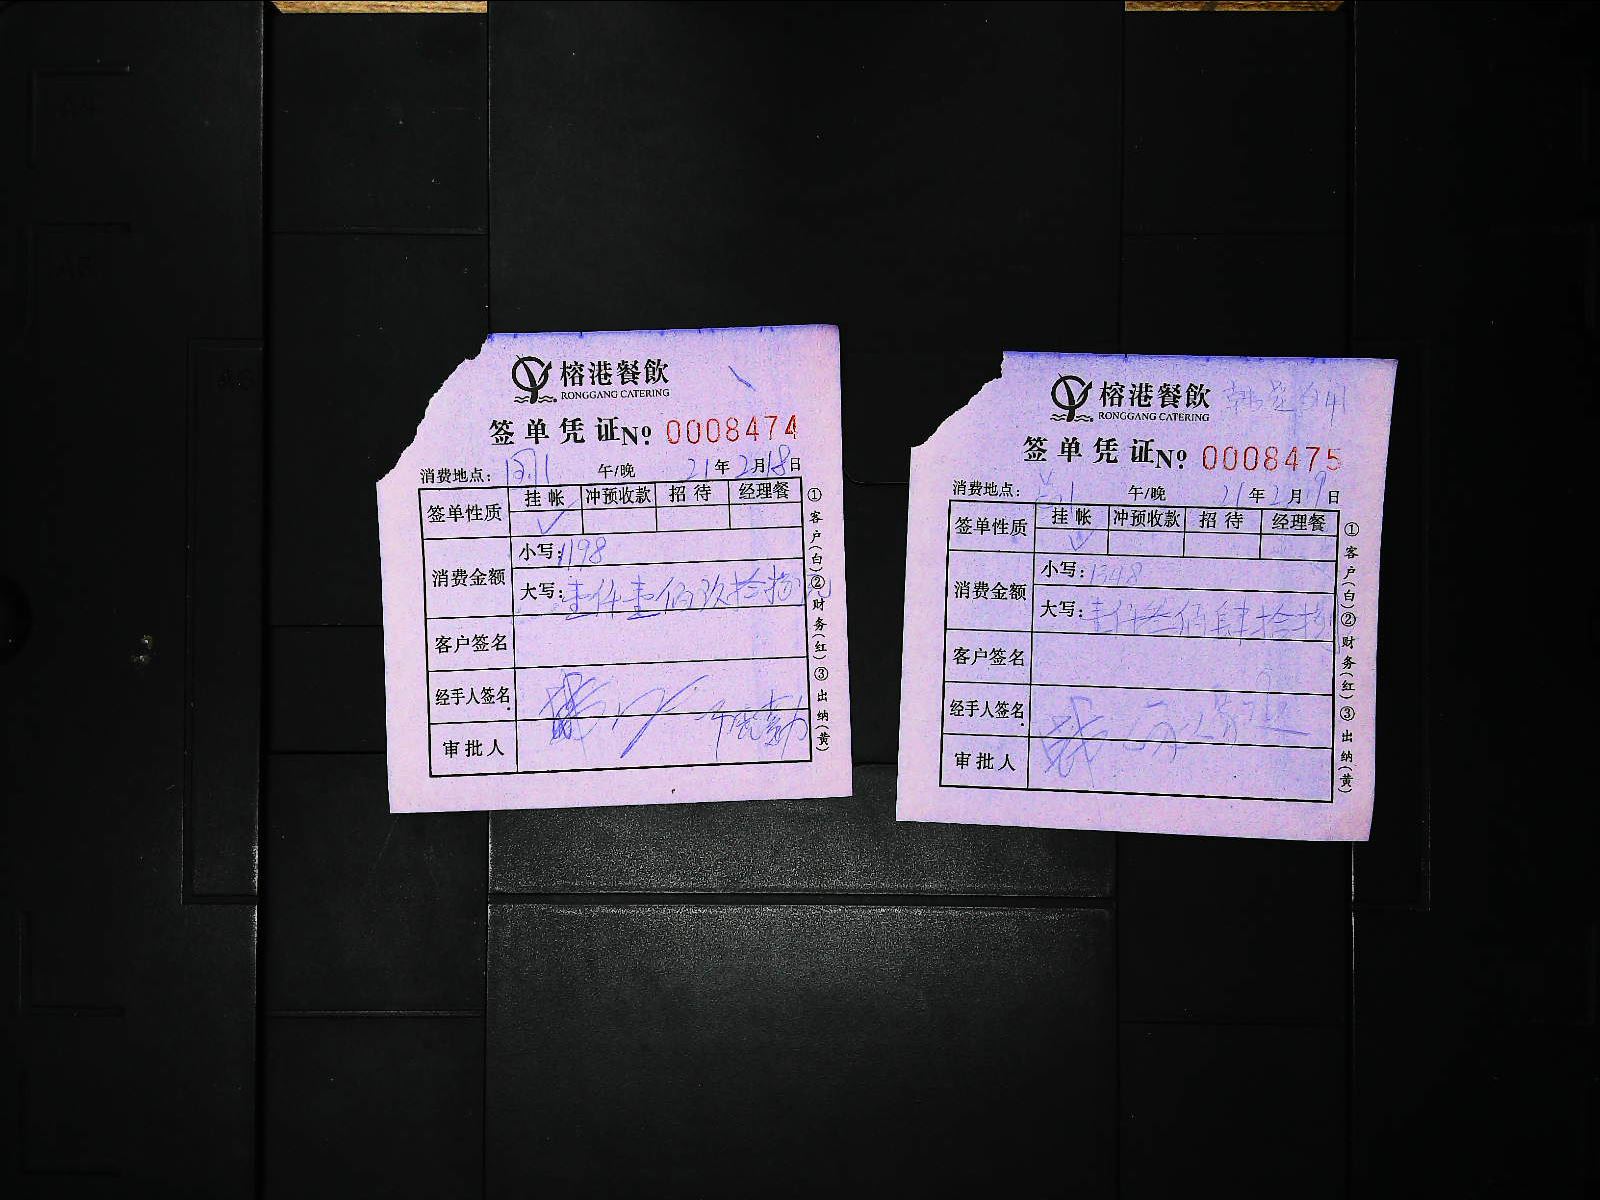 榕港餐飲
RONGGANG CATERING
签单凭证 № 0008474
消费地点： 午/晚 21年2月18日
签单性质 挂帐 冲预收款 招待 经理餐
✓
消费金额
小写：1198
大写：壹仟壹佰玖拾捌元
客户签名
经手人签名
审批人
①客户（白）②财务（红）③出纳（黄）
榕港餐飲
RONGGANG CATERING
签单凭证 № 0008475
消费地点： 午/晚 21年2月19日
签单性质 挂帐 冲预收款 招待 经理餐
✓
消费金额
小写：1348
大写：壹仟叁佰肆拾捌
客户签名
经手人签名
审批人
①客户（白）②财务（红）③出纳（黄）